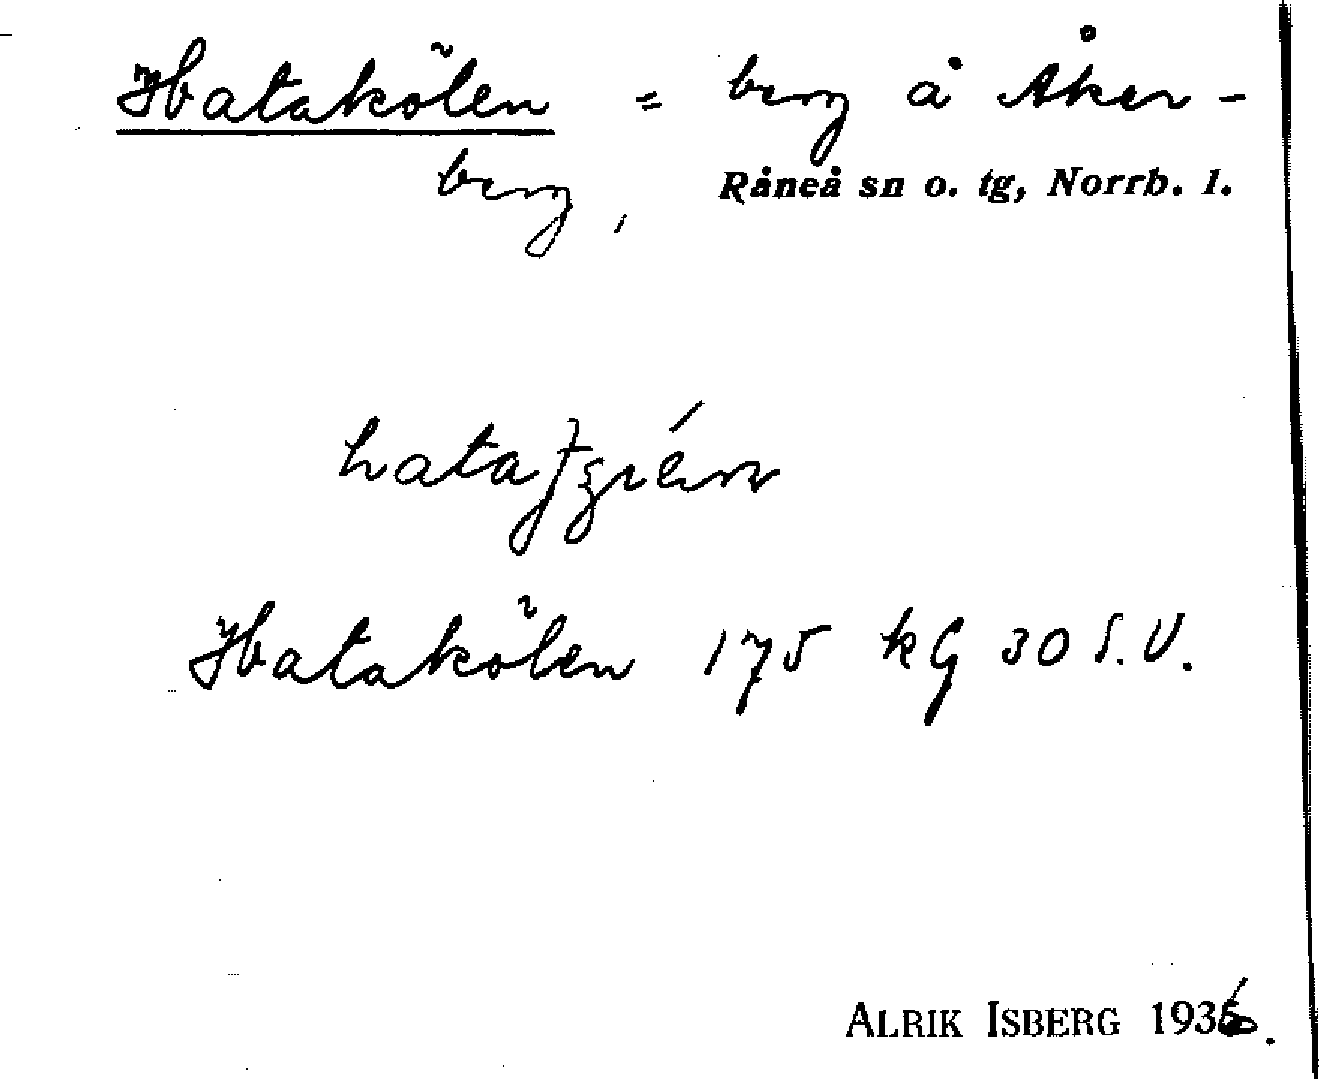 Hatakölen = berg å Åker-
berg,
Råneå sn o. tg, Norrb. l.
Hatakölen 175 kG 30 S.V.
ALRIK ISBERG 1936.